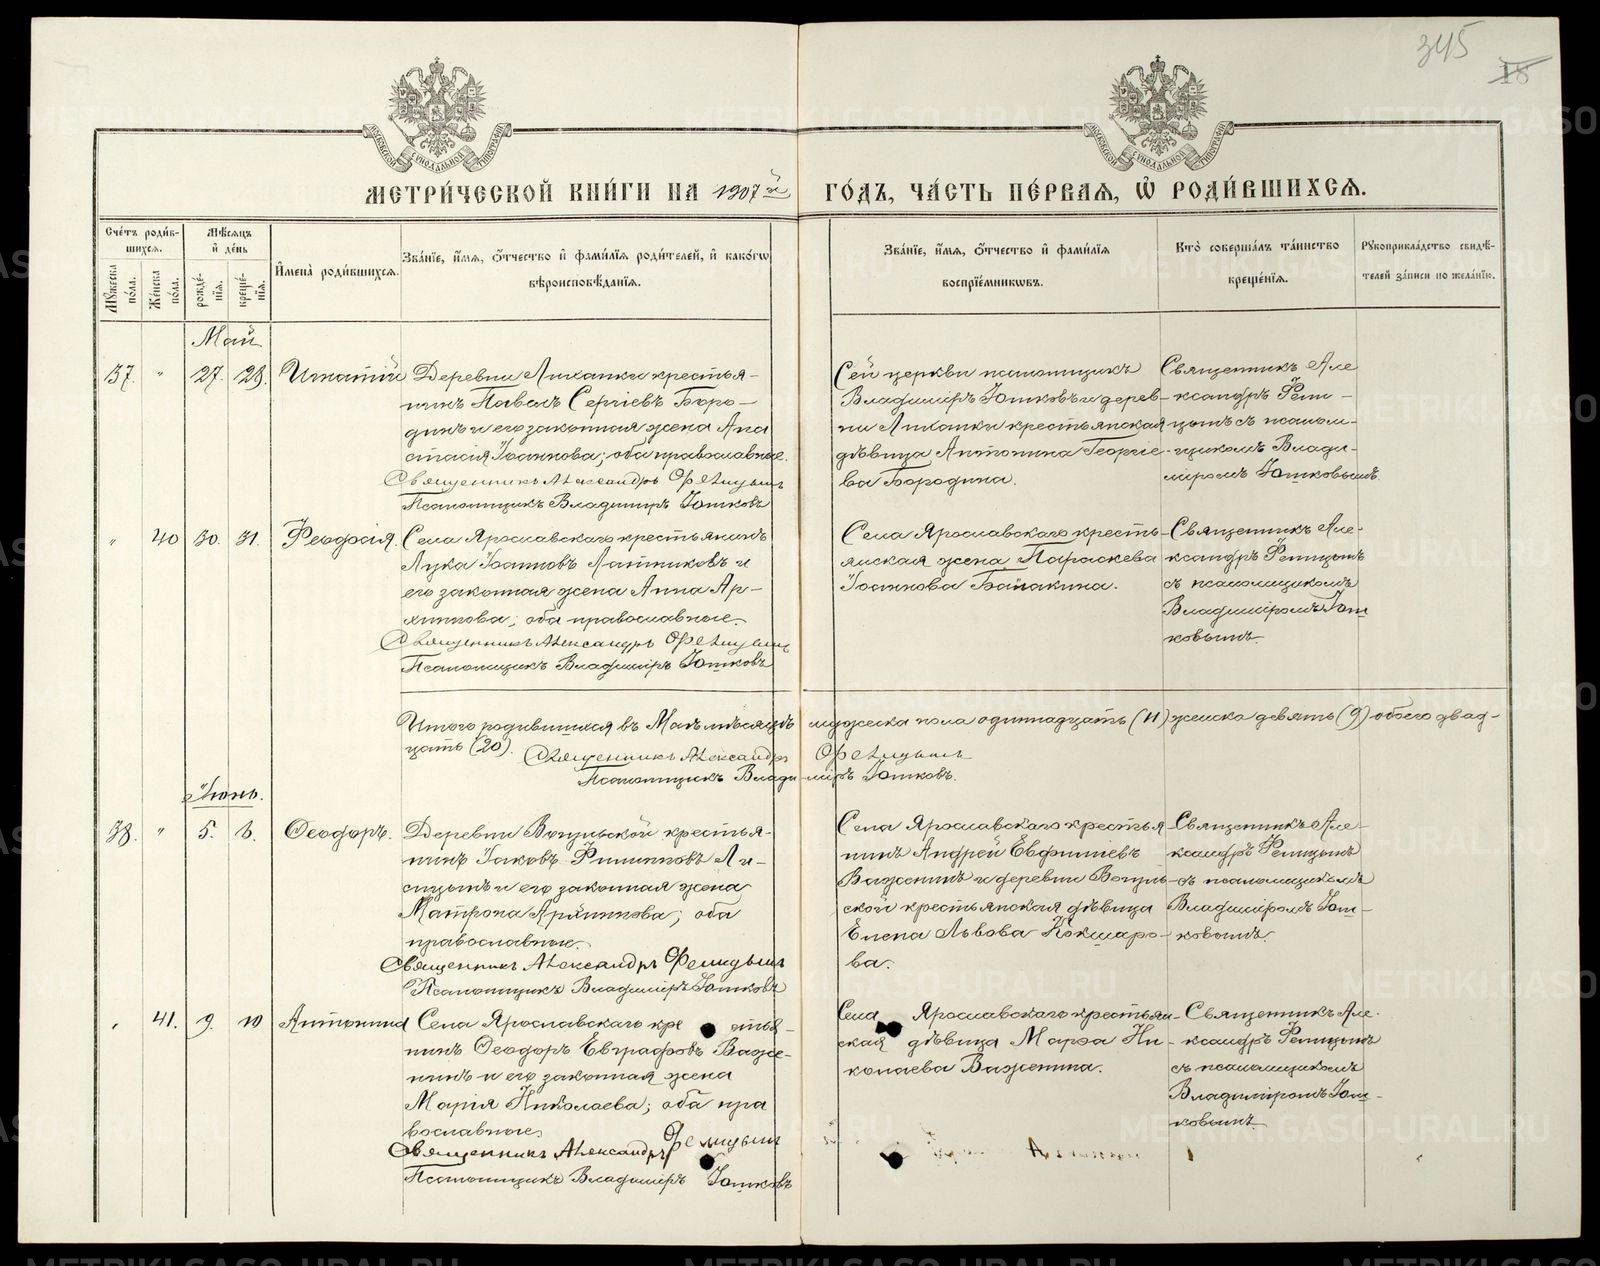 345
18
МОСКОВСКОЙ СѴНОДАЛЬНОЙ ТИПОГРАФІИ
МОСКОВСКОЙ СѴНОДАЛЬНОЙ ТИПОГРАФІИ
МЕТРИ́ЧЕСКОЙ КНИ́ГИ НА 1907й ГО́ДЪ, ЧА́СТЬ ПЕ́РВАѦ, Ѽ РОДИ́ВШИХСѦ.
Сче́тъ роди́в-
шихсѧ.
Мꙋжеска по́ла.
Же́нска по́ла.
Мѣ́сѧцъ
и҆ де́нь
рожде́-
нїѧ.
креще́-
нїѧ.
И҆мена̀ роди́вшихсѧ.
Зва́нїе, и҆́мѧ, ѻ҆́тчество и҆ фами́лїѧ роди́телей, и҆ како́гѡ
вѣроисповѣ́данїѧ.
Зва́нїе, и҆́мѧ, ѻ҆́тчество и҆ фами́лїѧ
воспрїе́мникѡвъ.
Кто̀ соверша́лъ та́инство
креще́нїѧ.
Рꙋкоприкла́дство свидѣ́-
телей за́писи по жела́нїю.
Май
37. " 27. 28. Игнатій
Деревни Ляханки крестья-
нинъ Павелъ Сергіевъ Боро-
динъ и его законная жена Ана
стасія Іоаннова; оба православные.
Священникъ Александръ Фелицынъ
Псаломщикъ Владиміръ Іотковъ
Сей церкви псаломщикъ
Владиміръ Іотковъ и дерев-
ни Ляханки крестьянская
дѣвица Антонина Георгіе-
ва Бородина.
Священникъ Але
ксандръ Фели-
цынъ съ псалом-
щикомъ Влади-
міромъ Іотковымъ.
" 40 30. 31. Феодосія.
Села Ярославскаго крестьянинъ
Лука Іоанновъ Латниковъ и
его законная жена Анна Ар-
хиппова; оба православные.
Священникъ Александръ Фелицынъ
Псаломщикъ Владиміръ Іотковъ
Села Ярославскаго кресть-
янская жена Параскева
Іоаннова Балакина.
Священникъ Але-
ксандръ Фелицынъ
съ псаломщикомъ
Владиміромъ Іот
ковымъ.
Итого родившихся въ Маѣ мѣсяцѣ мужеска пола одиннадцать (11) женска девять (9) обоего двад-
цать (20). Священникъ Александръ Фелицынъ
Псаломщикъ Владиміръ Іотковъ.
Іюнь.
38. " 5. 6. Ѳеодоръ.
Деревни Вогульской крестья-
нинъ Іаковъ Филипповъ Ли-
сицынъ и его законная жена
Матрона Архиппова; оба
православные.
Священникъ Александръ Фелицынъ
Псаломщикъ Владиміръ Іотковъ
Села Ярославскаго крестья-
нинъ Андрей Евфиміевъ
Важенинъ и деревни Вогуль-
ской крестьянская дѣвица
Елена Львова Кокшаро-
ва.
Священникъ Але-
ксандръ Фелицынъ
съ псаломщикомъ
Владиміромъ Іот-
ковымъ.
" 41. 9. 10 Антонина
Села Ярославскаго кре стья-
нинъ Ѳеодоръ Евграфовъ Важе-
нинъ и его законная жена
Марія Николаева; оба пра
вославные.
Священникъ Александръ Фелицынъ
Псаломщикъ Владиміръ Іотковъ
Села Ярославскаго крестьян-
ская дѣвица Марѳа Ни-
колаева Важенина.
Священникъ Але-
ксандръ Фелицынъ
съ псаломщикомъ
Владиміромъ Іот-
ковымъ.
METRIKI.GASO-URAL.RU